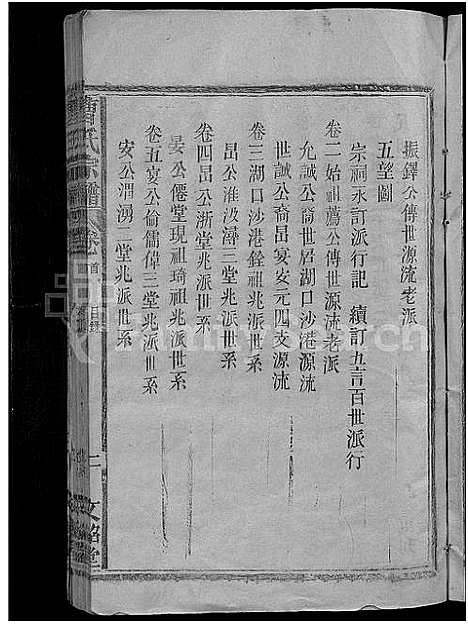 振鐸公傳世源流老派
五望圖
宗祠永訂派行記 續訂五言百世派行
卷二始祖蔿公傳世源流老派
允誠公裔世居湖口沙港源流
世誠公裔昂宴安元四支源流
卷三湖口沙港銓祖兆派世系
昂公淮汲濤三堂兆派世系
卷四昂公浙堂兆派世系
晏公僊堂現祖琦祖兆派世系
卷五宴公倫儒偉三堂兆派世系
安公渭湧二堂兆派世系
曹氏宗譜 卷首 目錄 二 文韶堂